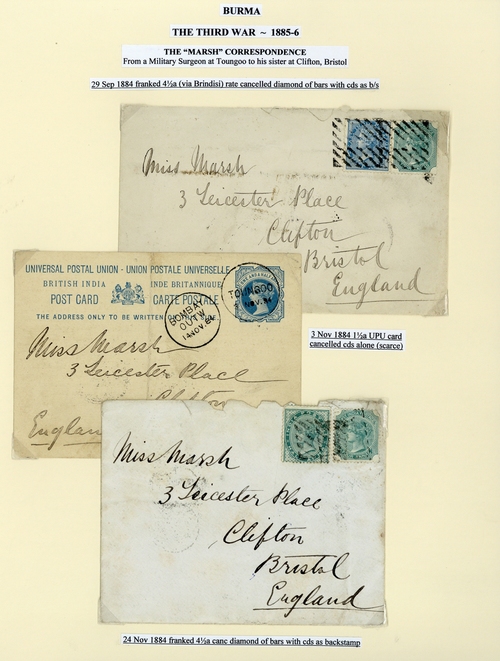 BURMA
THE THIRD WAR ~ 1885-6
THE "MARSH" CORRESPONDENCE
From a Military Surgeon at Toungoo to his sister at Clifton, Bristol
29 Sep 1884 franked 4½a (via Brindisi) rate cancelled diamond of bars with cds as b/s
Miss Marsh
3 Leicester Place
Clifton
Bristol
England
UNIVERSAL POSTAL UNION - UNION POSTALE UNIVERSELLE
BRITISH INDIA INDE BRITANNIQUE
POST CARD CARTE POSTALE
THE ADDRESS ONLY TO BE WRITTEN
TOUNGOO
NOV. 84
BOMBAY
OUTW
14 NOV. 84
Miss Marsh
3 Leicester Place
Clifton
England
3 Nov 1884 1½a UPU card
cancelled cds alone (scarce)
Miss Marsh
3 Leicester Place
Clifton
Bristol
England
24 Nov 1884 franked 4½a canc diamond of bars with cds as backstamp